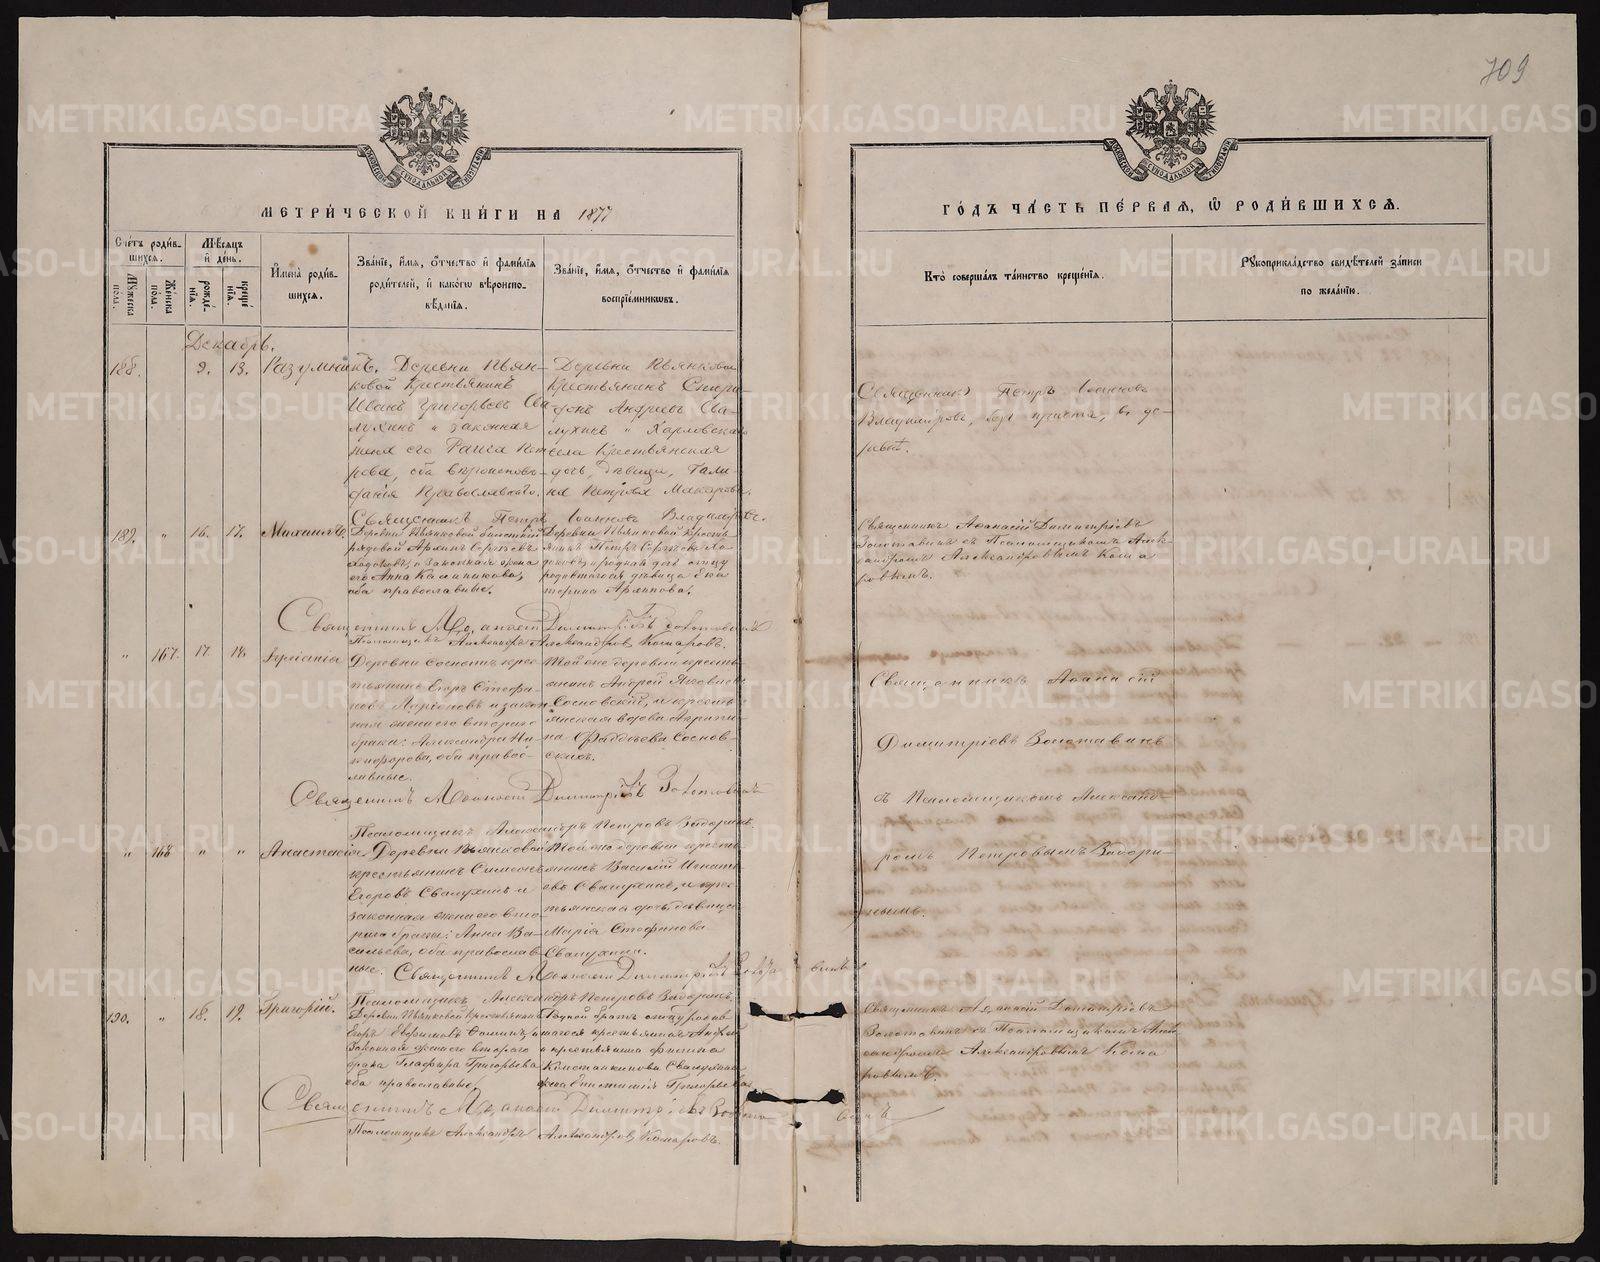 709
МЕТРИ́ЧЕСКОЙ КНИ́ГИ НА 1877
ГО́ДЪ ЧА́СТЬ ПЕ́РВАЯ, Ѿ РОДИ́ВШИХСѦ.
Сче́тъ роди́в-
шихся.
Мѣ́сяцъ
и де́нь.
Му́жеска
по́ла.
Же́нска
по́ла.
рожде́-
нїѧ.
креще́-
нїѧ.
Имена̀ роди́в-
шихся.
Зва́нїе, и́мя, о́тчество и фами́лїя
роди́телей, и како́гѡ вѣроиспо-
вѣ́данїя.
Зва́нїе, и́мя, о́тчество и фами́лїя
воспрїе́мникѡвъ.
Кто̀ соверша́лъ та́инство креще́нїя.
Рꙋкоприкла́дство свидѣ́телей за́писи
по жела́нїю.
Декабрь.
188. 9. 13. Разумникъ.
Деревни Пьян-
ковой Крестьянинъ
Иванъ Григорьевъ Сва
лухинъ и законная
жена его Раиса Пет
рова, оба вѣроисповѣ-
данія Православнаго.
Деревни Пьянковой
Крестьянинъ Спири-
донъ Андреевъ Сва-
лухинъ и Харловскаго
села Крестьянская
дочь, дѣвица, Гали-
на Петрова Макарова.
Священникъ Петръ Іоанновъ
Владиміровъ, безъ причта, въ де-
ревнѣ.
Священникъ Петръ Іоанновъ Владиміровъ.
189. " 16. 17. Михаилъ.
Деревни Пьянковой билетный
рядовой Архипъ Сергѣевъ
и законная жена
его Анна Калиникова,
оба православные.
Деревни Пьянковой Кресть-
янинъ Петръ Сергѣевъ
и родная дочь отцу
родившагося дѣвица Ека
терина Архипова.
Священникъ Аѳанасій Димитріевъ
Золотавинъ съ Псаломщикомъ Алек-
сандромъ Александровымъ Кома
ровымъ.
Священникъ Аѳанасій Димитріевъ Золотавинъ
Псаломщикъ Александръ Александровъ Комаровъ.
" 167. 17. 18.
Деревни Сосновой крес-
тьянинъ Егоръ Стефа-
новъ Ларіоновъ и закон
ная жена его втораго
брака: Александра Ни-
кифорова, оба правос-
лавные.
Той же деревни кресть-
янинъ Андрей Яковлевъ
Сосновскій, и кресть-
янская вдова Агрипи-
на Фаддѣева Соснов-
скихъ.
Священникъ Аѳанасій
Димитріевъ Золотавинъ
съ Псаломщикомъ Александ-
ромъ Петровымъ Задори-
нымъ.
Священникъ Аѳанасій Димитріевъ Золотавинъ
Псаломщикъ Александръ Петровъ Задоринъ.
" 168 " " Анастасія
Деревни Пьянковой
крестьянинъ Симеонъ
Егоровъ Свалухинъ и
законная жена его вто-
рого брака: Анна Ва-
сильева, оба православ-
ные.
Той же деревни кресть-
янинъ Василій Игнать-
евъ Свалухинъ, и крес-
тьянская дочь дѣвица
Марія Стефанова
Свалухина.
Священникъ Аѳанасій Димитріевъ Золотавинъ
Псаломщикъ Александръ Петровъ Задоринъ.
190. " 18. 19. Григорій.
Деревни Пьянковой Крестьянинъ
Егоръ
законная жена его втораго
брака Глафира Григорьева
оба православные.
Родной братъ отцу родив
шагося крестьянинъ Андрей
и крестьянина Филиппа
Константинова Свалухина
жена Григорьева
Священникъ Аѳанасій Димитріевъ
Золотавинъ съ Псаломщикомъ Алек
сандромъ Александровымъ Кома
ровымъ.
Священникъ Аѳанасій Димитріевъ Золотавинъ
Псаломщикъ Александръ Александровъ Комаровъ.
METRIKI.GASO-URAL.RU